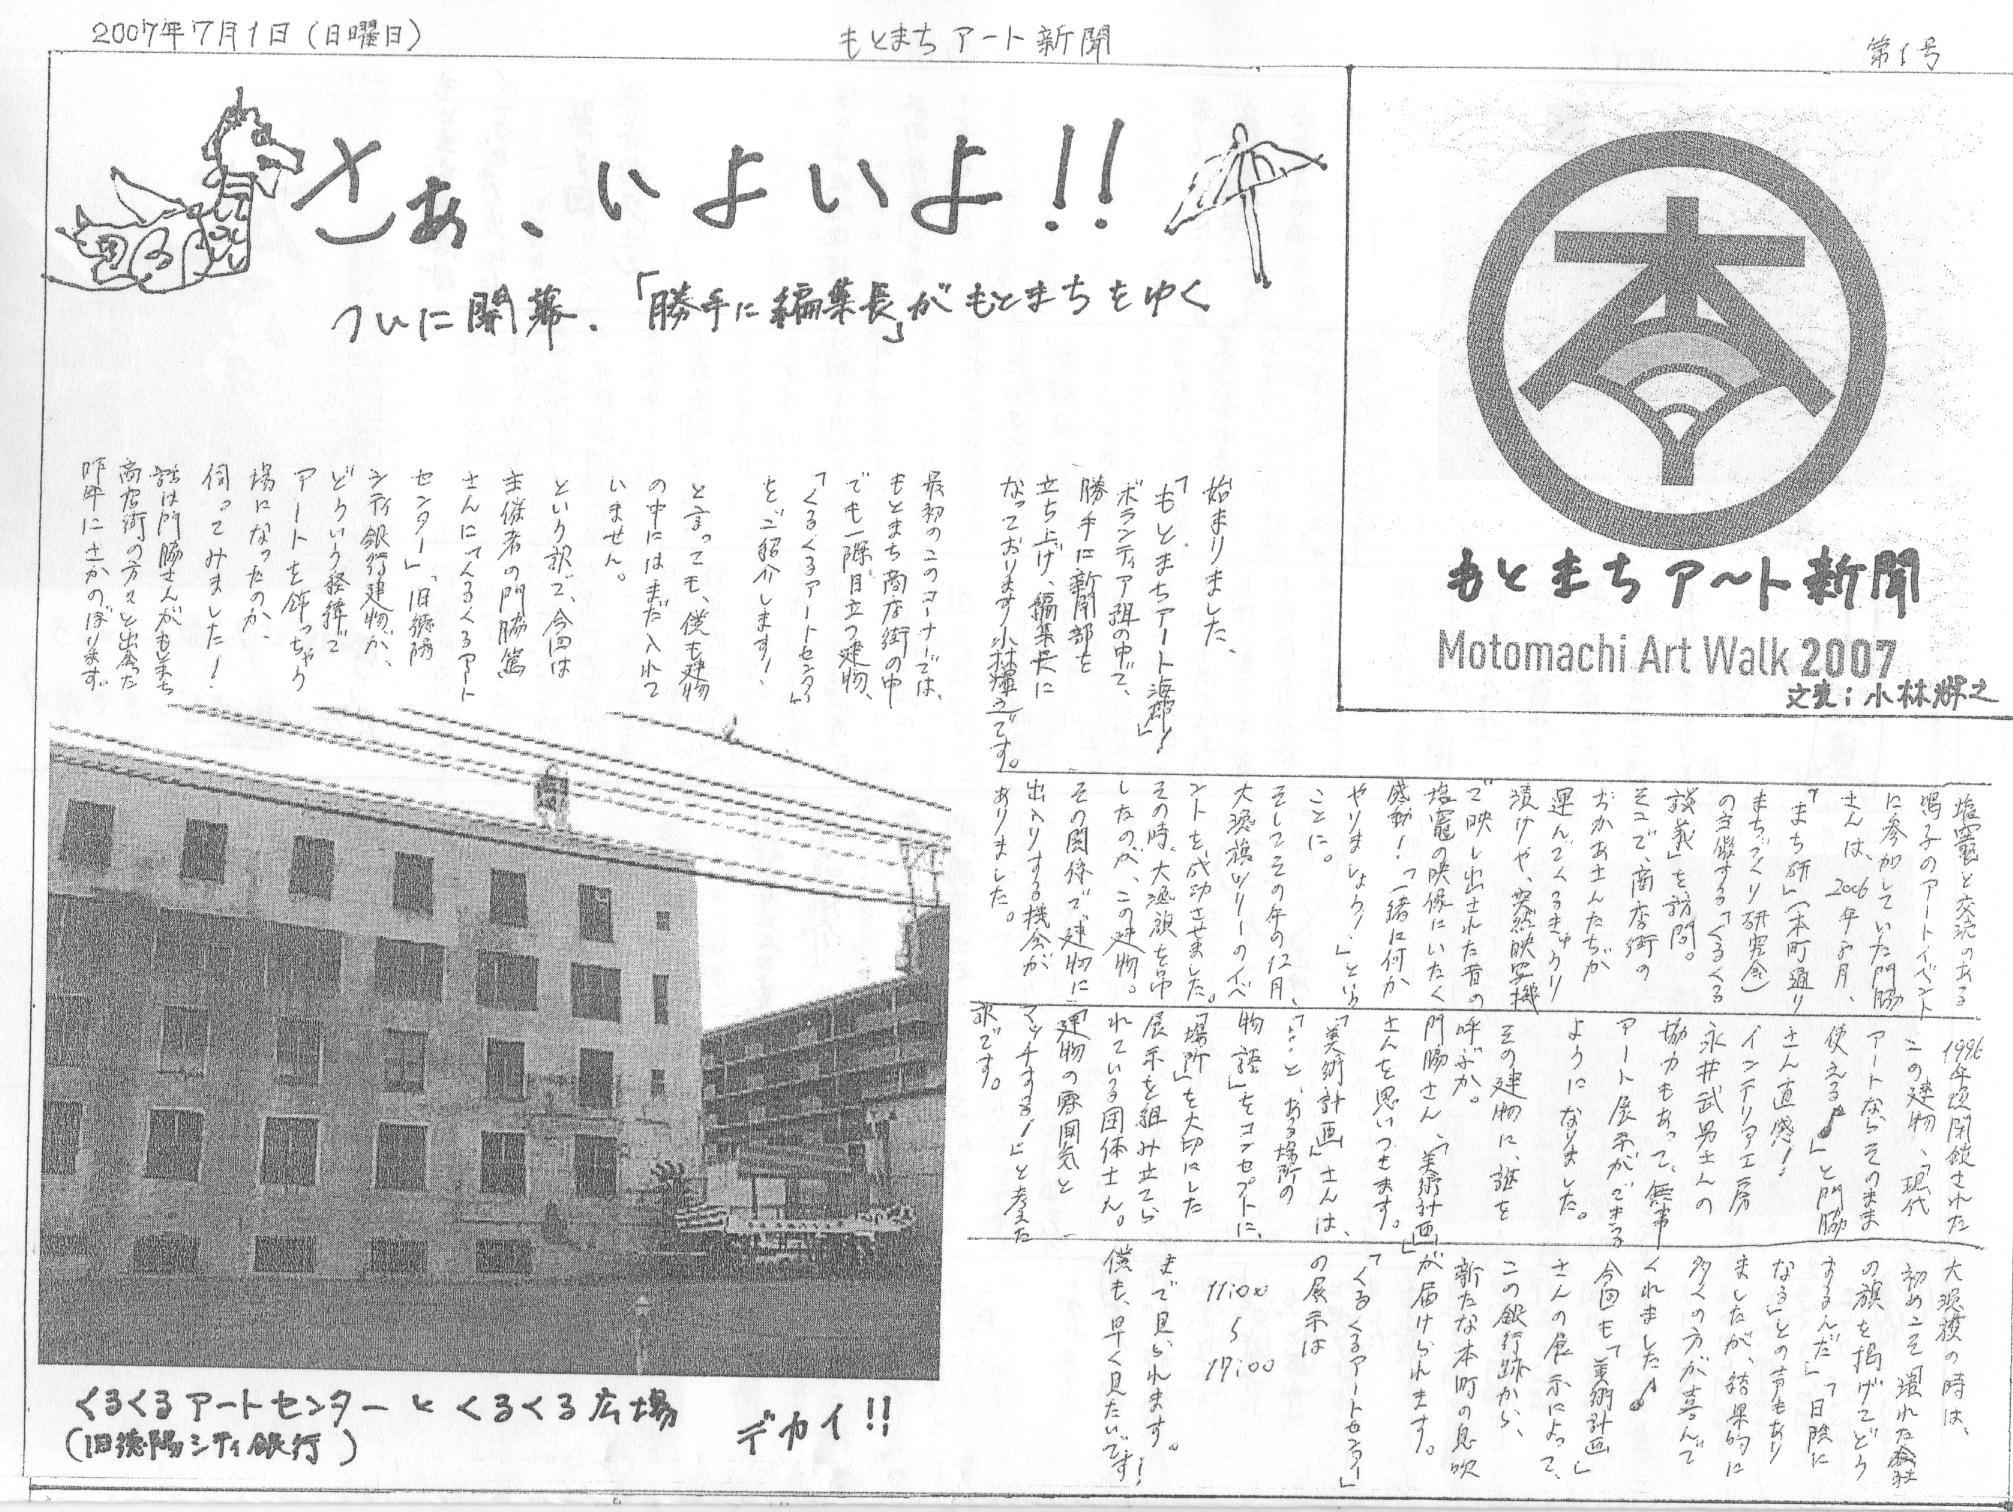 2007年7月1日(日曜日)
もとまちアート新聞
第1号
さあ、いよいよ!!
ついに開幕、「勝手に編集長」がもとまちをゆく
もとまちアート新聞
Motomachi Art Walk 2007
文責:小林輝之
始まりました、
「もとまちアート海廊!」
ボランティア班の中で、
勝手に新聞部を
立ち上げ、編集長に
なっております小林輝之です。
最初のこのコーナーでは、
もとまち商店街の中
でも一際目立つ建物、
「くるくるアートセンター」
をご紹介します!
と言っても、僕も建物
の中にはまだ入れて
いません。
という訳で、今回は
主催者の門脇篤
さんに「くるくるアート
センター」、旧徳陽
シティ銀行建物が、
どういう経緯で
アートを飾っちゃう
場になったのか、
伺ってみました!
話は門脇さんがもとまち
商店街の方々と出会った
昨年にさかのぼります。
塩竈と交流のある
鳴子のアートイベント
に参加していた門脇
さんは、2006年5月、
「まち研」(本町通り
まちづくり研究会)
の主催する「くるくる
談義」を訪問。
そこで、商店街の
おかあさんたちが
運んでくるきゅうり
漬けや、突然映写機
で映し出された昔の
塩竈の映像にいたく
感動!「一緒に何か
やりましょう!」という
ことに。
そしてその年の12月、
大漁旗ツリーのイベ
ントを成功させました。
その時、大漁旗を吊
したのが、この建物。
その関係で建物に
出入りする機会が
ありました。
1996年頃閉鎖された
この建物、「現代
アートならそのまま
使える♪」と門脇
さん直感!
インテリア工房
永井武男さんの
協力もあって、無事
アート展示ができる
ようになりました。
その建物に、誰を
呼ぶか。
門脇さん、「美術計画」
さんを思いつきます。
「美術計画」さんは、
「…と、ある場所の
物語」をコンセプトに、
「場所」を大切にした
展示を組み立てら
れている団体さん。
「建物の雰囲気と
マッチする!」と考えた
訳です。
大漁旗の時は、
初めこそ「潰れた会社
の旗を掲げてどう
するんだ」「日陰に
なる」との声もあり
ましたが、結果的に
多くの方が喜んで
くれました♪
今回も「美術計画」
さんの展示によって、
この銀行跡から、
新たな本町の息吹
が届けられます。
「くるくるアートセンター」
の展示は
11:00
〜
17:00
まで見られます。
僕も、早く見たいです!
くるくるアートセンターとくるくる広場
(旧徳陽シティ銀行)
デカイ!!